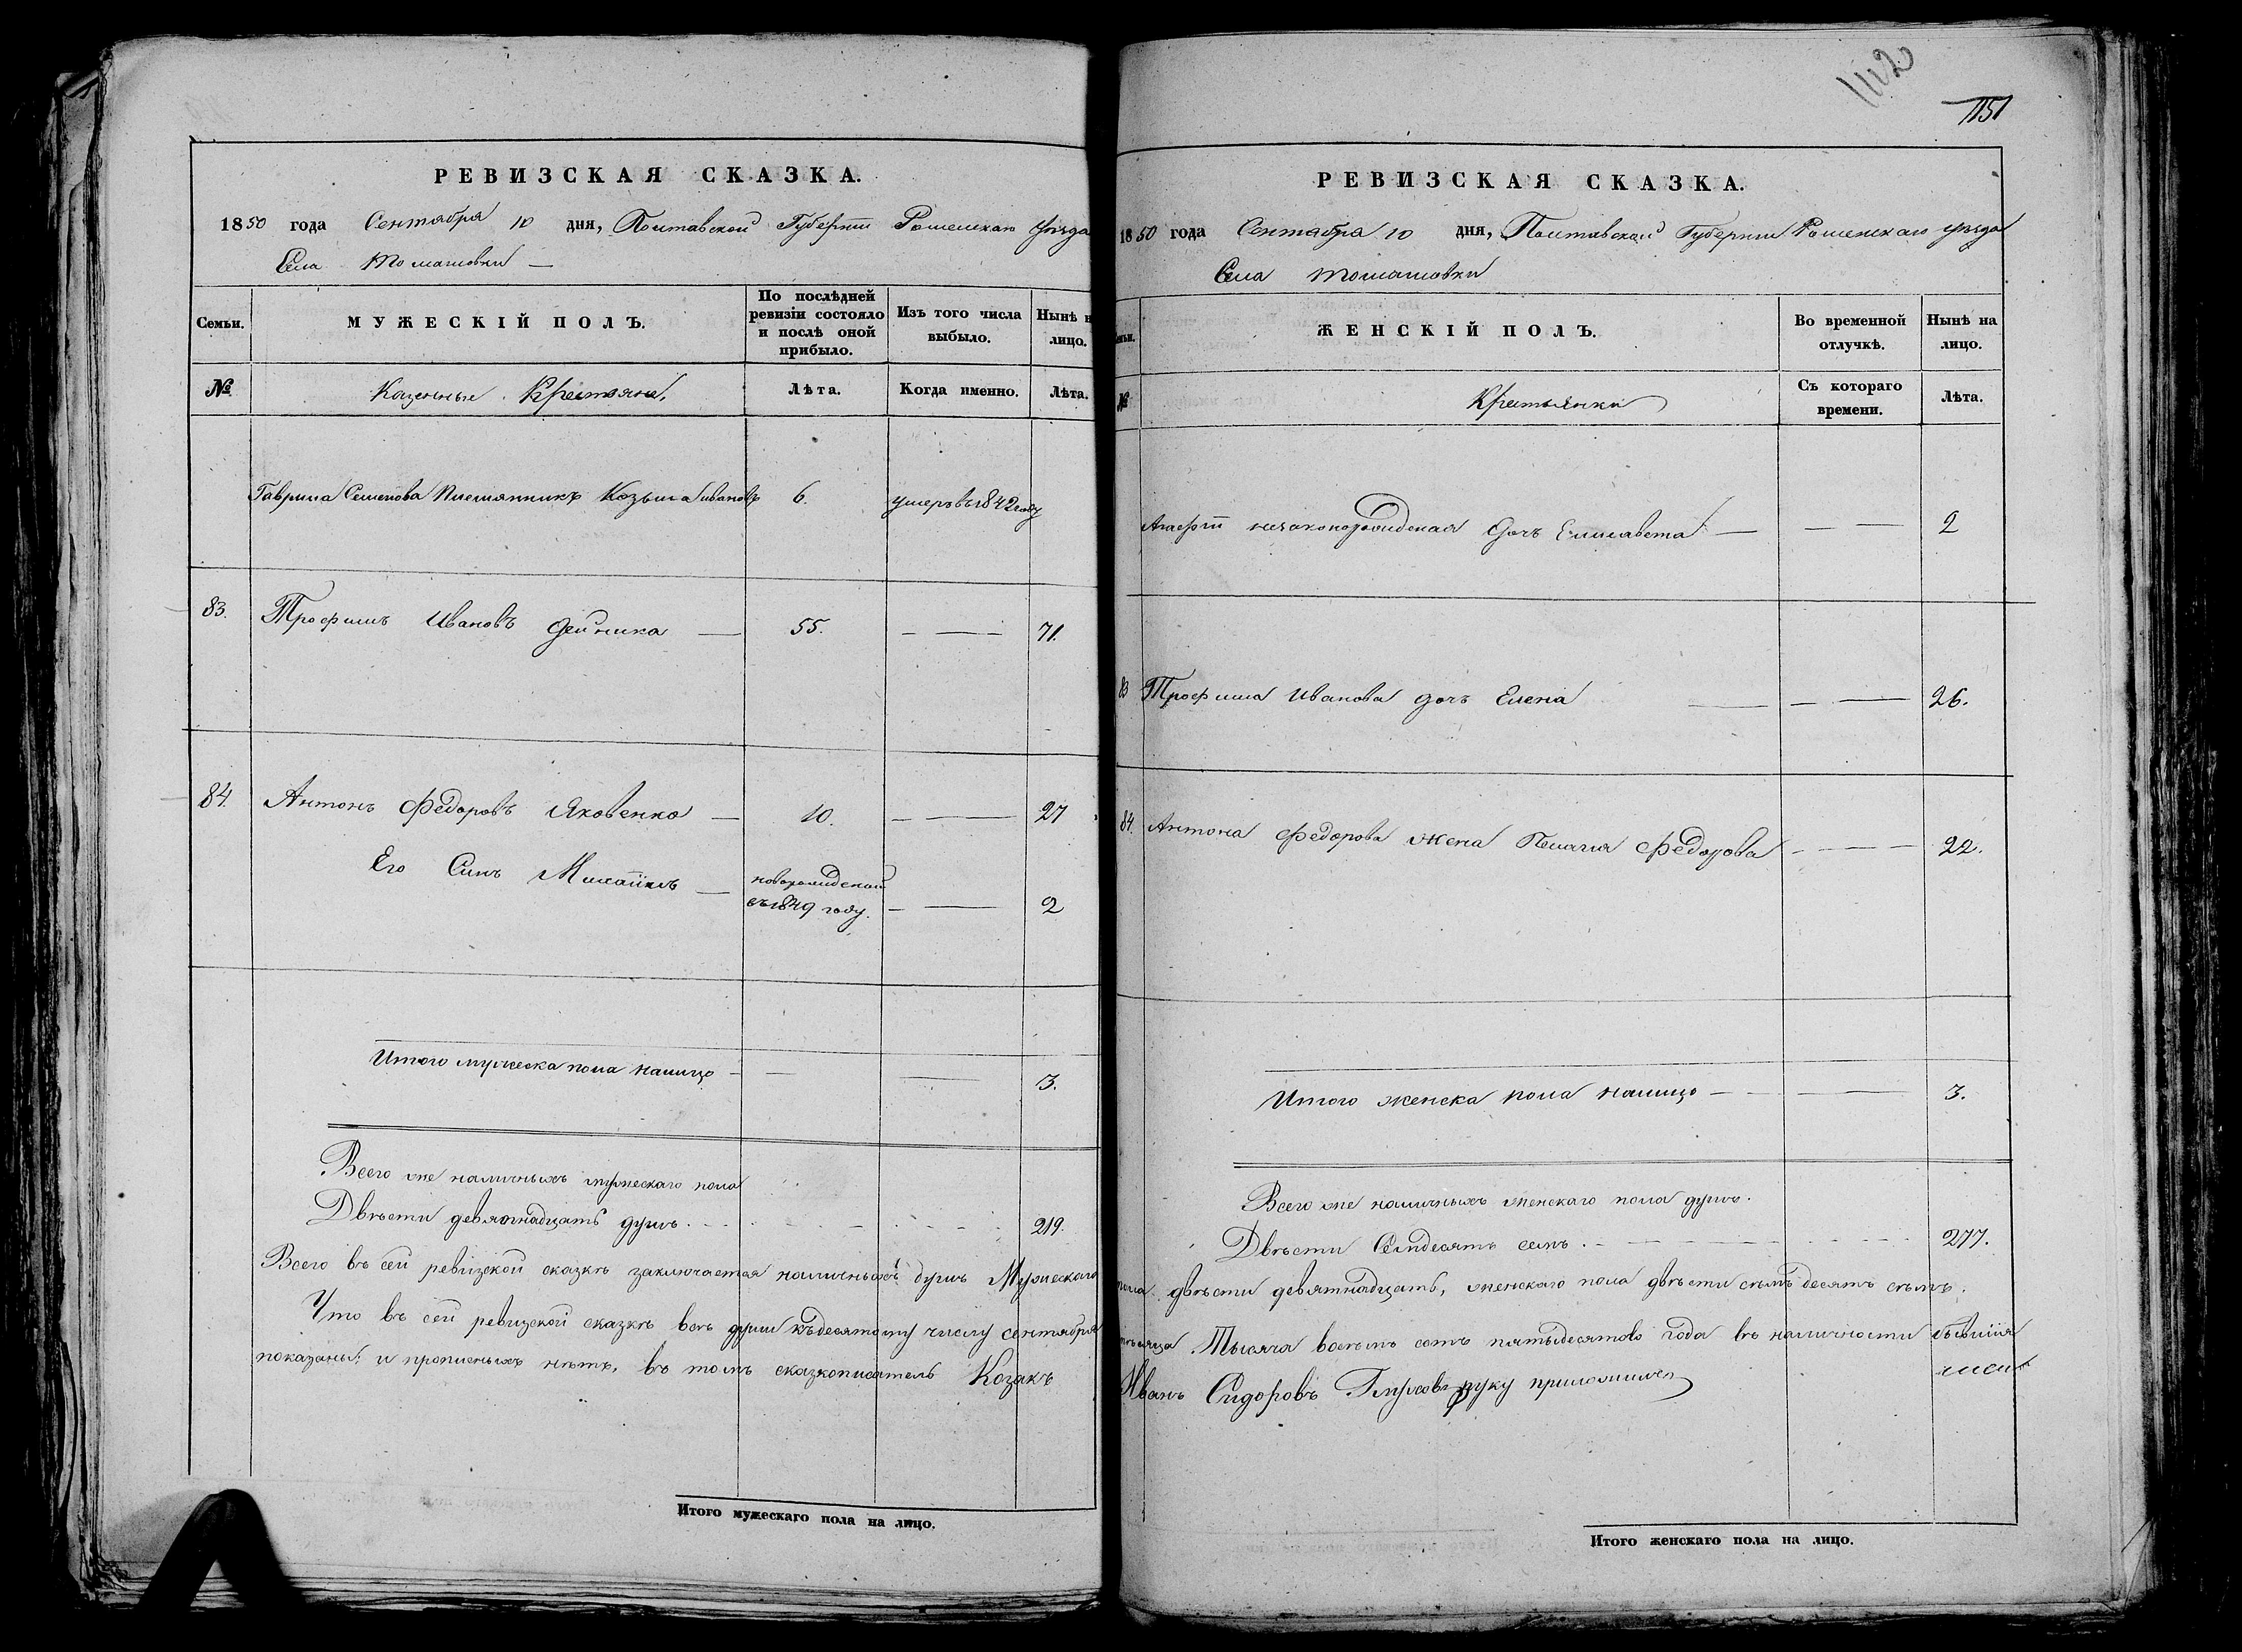 РЕВИЗСКАЯ СКАЗКА.
1850 года Сентября 10 дня, Полтавской Губернiи Роменскаго уѣзда
Села Томашовки
Семьи. МУЖЕСКIЙ ПОЛЪ. По послѣдней ревизiи состояло и послѣ оной прибыло. Изъ того числа выбыло. Нынѣ на лицо.
№ Казенные Крестьяне. Лѣта. Когда именно. Лѣта.
Гаврила Семенова племянникъ Козьма Ивановъ 6. умеръ въ 1842 году
83. Трофимъ Ивановъ Дейника — 55. — — 71.
84. Антонъ Федоровъ Яковенко — 10. — — 27
Его Синъ Михаiилъ — новорожденой
въ 1849 году. — — 2
Итого мужеска пола налицо — — — 3.
Всего же наличныхъ мужескаго пола
Двѣсти девятнадцать душъ. 219.
Всего въ сей ревизской сказкѣ заключается наличныхъ душъ Мужескаго
Что въ сей ревизской сказкѣ всѣ души къ десятому числу сентября
показаны; и прописныхъ нѣтъ, въ томъ сказкописатель Козакъ
Итого мужескаго пола на лицо.
1112
1151
РЕВИЗСКАЯ СКАЗКА.
1850 года Сентября 10 дня, Полтавской Губернiи Роменскаго уѣзда
Села Томашовки
ЖЕНСКIЙ ПОЛЪ. Во временной отлучкѣ. Нынѣ на лицо.
№ Крестьянки Съ котораго времени. Лѣта.
незаконорожденая дочъ Елисавета — — — 2
83 Трофима Иванова дочъ Елена — — — 26.
84. Антона Федорова жена Пелагия Федорова — — 22.
Итого женска пола налицо — — — 3.
Всего же наличныхъ женскаго пола душъ.
Двѣсти Семдесятъ семъ. 277.
пола двѣсти девятнадцать, женскаго пола двѣсти сѣмъ десятъ сѣмъ.
мѣсяца Тысяча восѣмъ сотъ пятьдесятово года въ наличности бывшiя
Иванъ Сидоровъ руку приложилъ
Итого женскаго пола на лицо.